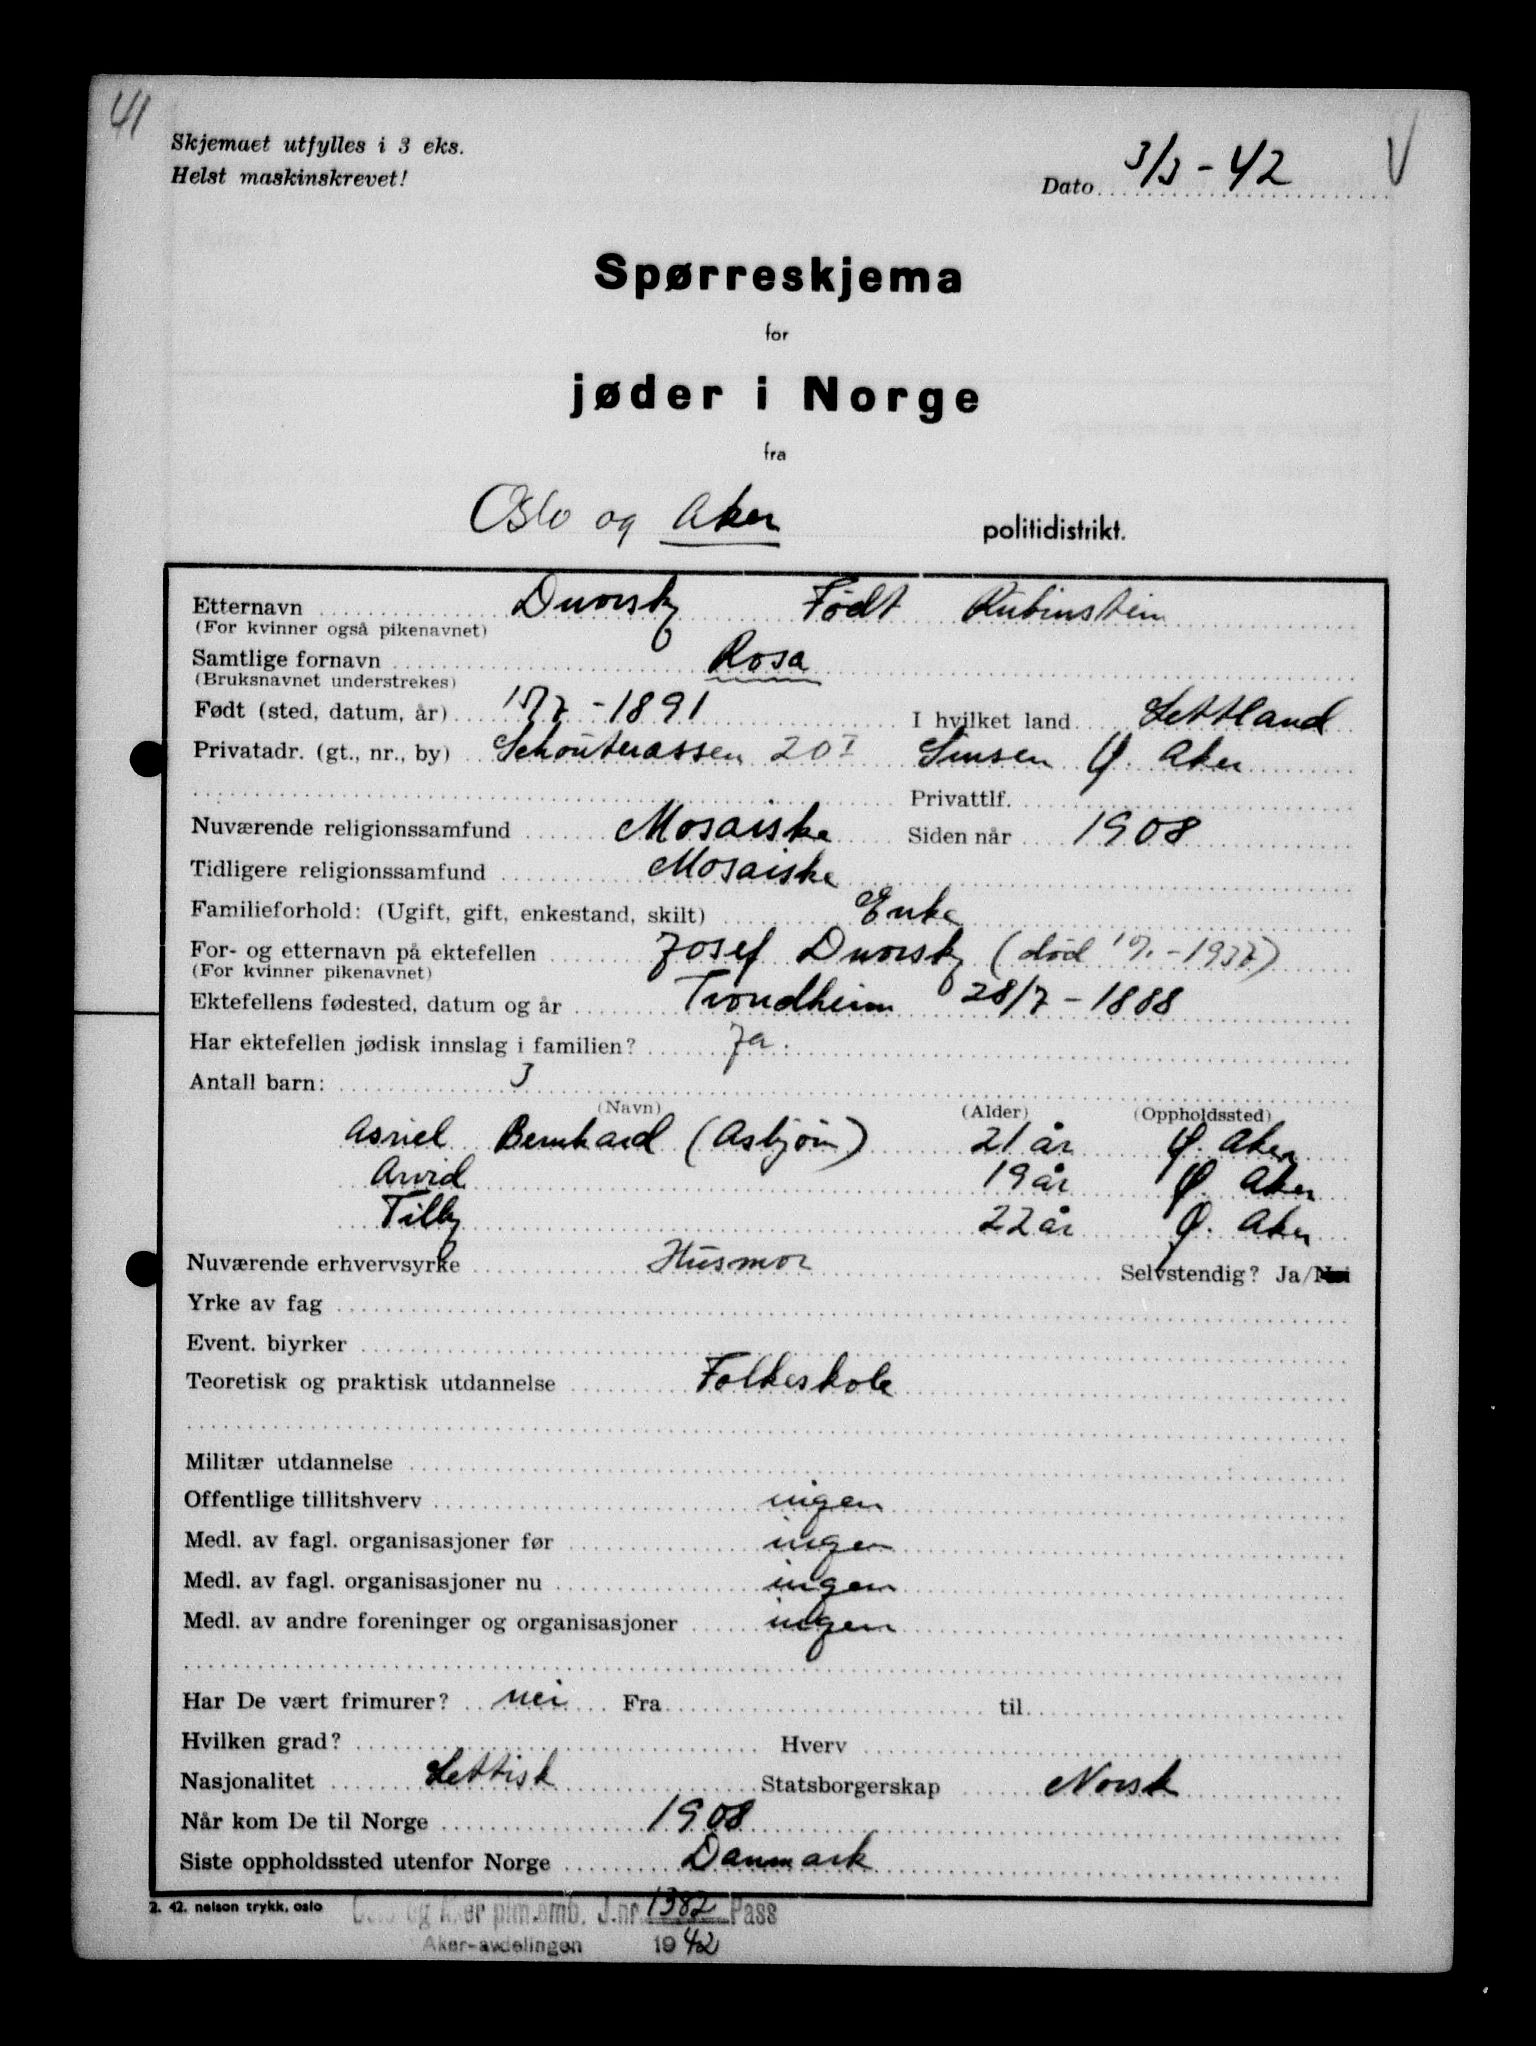 41
Skjemaet utfylles i 3 eks.
Helst maskinskrevet!
Dato 3/3 - 42 V
Spørreskjema
for
jøder i Norge
fra
Oslo og Aker politidistrikt.
Etternavn Dvorsky Født Rubinstein
(For kvinner også pikenavnet)
Samtlige fornavn Rosa
(Bruksnavnet understrekes)
Født (sted, datum, år) 15/7 - 1891 I hvilket land Lettland
Privatadr. (gt., nr., by) Schouterassen 20 I Sinsen Ø. Aker
Privattlf.
Nuværende religionssamfund Mosaiske Siden når 1908
Tidligere religionssamfund Mosaiske
Familieforhold: (Ugift, gift, enkestand, skilt) Enke
For- og etternavn på ektefellen Josef Dvorsky (død
(For kvinner pikenavnet)
Ektefellens fødested, datum og år Trondheim 28/7 - 1888
Har ektefellen jødisk innslag i familien? Ja.
Antall barn: 3
(Navn) (Alder) (Oppholdssted)
Asriel Bernhard (Asbjørn) 21 år Ø. Aker
Arvid 19 år Ø. Aker
Tilly 22 år Ø. Aker
Nuværende erhvervsyrke Husmor Selvstendig? Ja/Nei
Yrke av fag
Event. biyrker
Teoretisk og praktisk utdannelse Folkeskole
Militær utdannelse
Offentlige tillitshverv ingen
Medl. av fagl. organisasjoner før ingen
Medl. av fagl. organisasjoner nu ingen
Medl. av andre foreninger og organisasjoner ingen
Har De vært frimurer? nei Fra til
Hvilken grad? Hverv
Nasjonalitet Lettisk Statsborgerskap Norsk
Når kom De til Norge 1908
Siste oppholdssted utenfor Norge Danmark
2. 42. nelson trykk, oslo
Oslo og Aker plm.emb. J.nr. 1382 Pass
Aker-avdelingen 1942